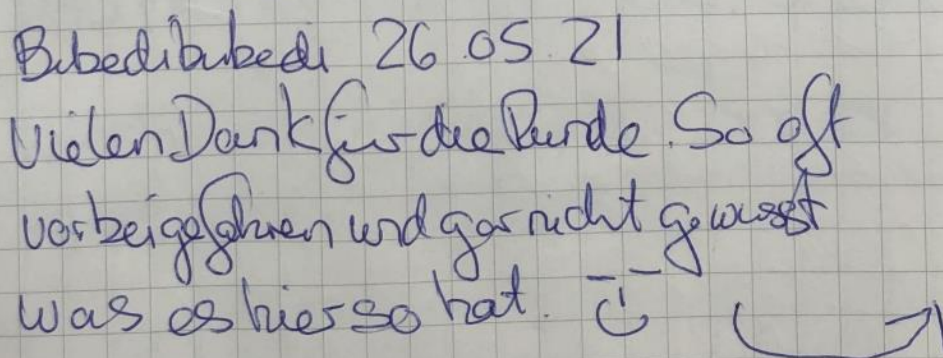 Bibedibubedi 26.05.21
Vielen Dank für die Runde. So oft
vorbeigefahren und gar nicht gewusst
was es hier so hat.